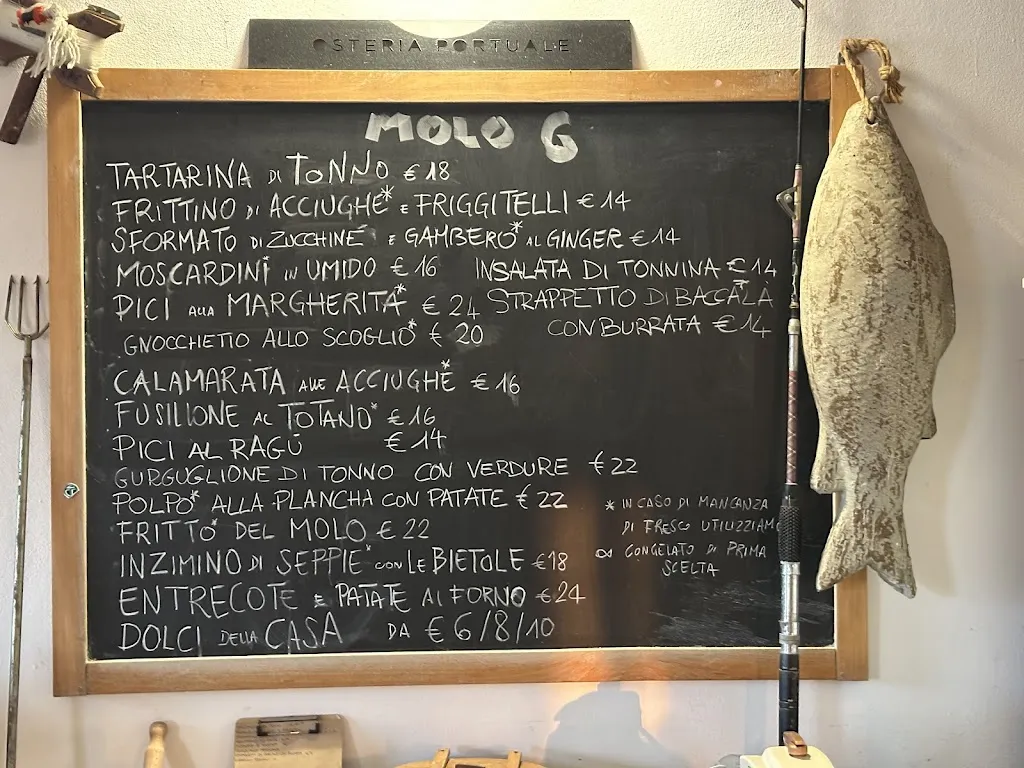 OSTERIA PORTUALE
MOLO G
TARTARINA DI TONNO € 18
FRITTINO DI ACCIUGHE* E FRIGGITELLI € 14
SFORMATO DI ZUCCHINE E GAMBERO* AL GINGER € 14
MOSCARDINI* IN UMIDO € 16
INSALATA DI TONNINA € 14
PICI ALLA MARGHERITA* € 24
STRAPPETTO DI BACCALÀ
CON BURRATA € 14
GNOCCHETTO ALLO SCOGLIO* € 20
CALAMARATA ALLE ACCIUGHE* € 16
FUSILLONE AL TOTANO* € 16
PICI AL RAGÙ € 14
GURGUGLIONE DI TONNO CON VERDURE € 22
POLPO* ALLA PLANCHA CON PATATE € 22
FRITTO* DEL MOLO € 22
INZIMINO DI SEPPIE* CON LE BIETOLE € 18
ENTRECOTE E PATATE AL FORNO € 24
DOLCI DELLA CASA DA € 6/8/10
* IN CASO DI MANCANZA
DI FRESCO UTILIZZIAMO
CONGELATO DI PRIMA
SCELTA